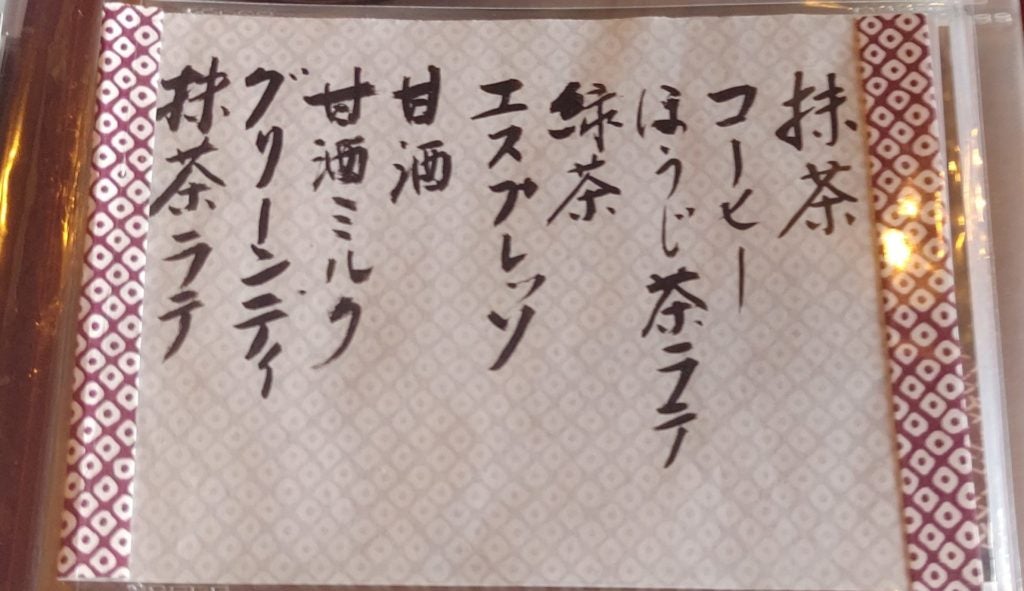 抹茶
コーヒー
ほうじ茶ラテ
緑茶
エスプレッソ
甘酒
甘酒ミルク
グリーンティ
抹茶ラテ